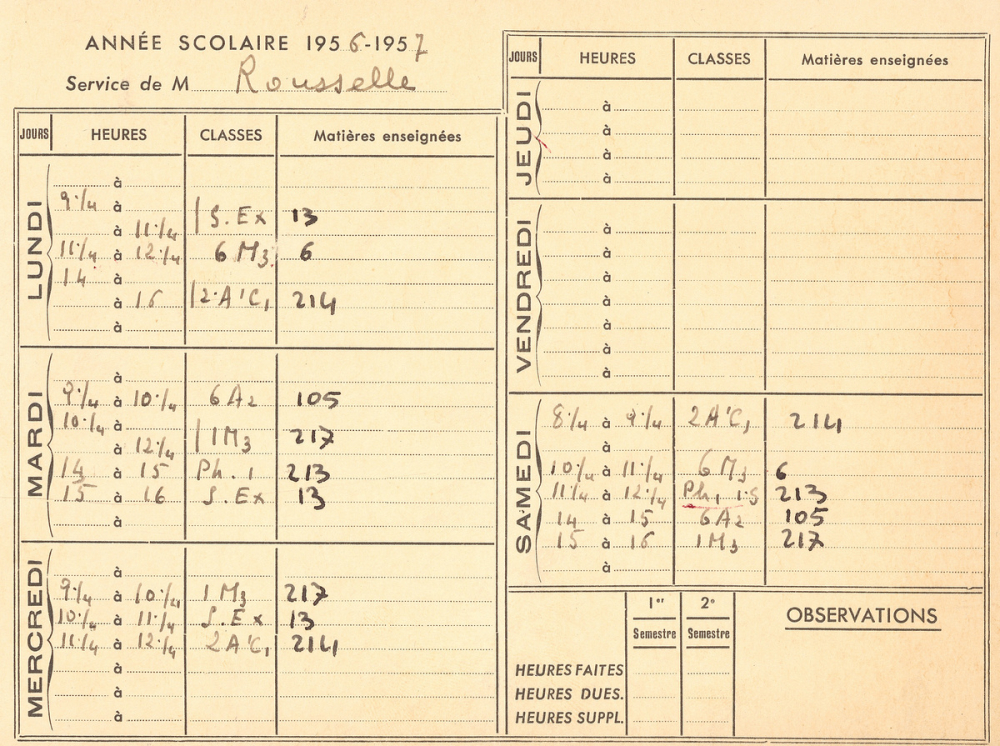 ANNÉE SCOLAIRE 1956-1957
Service de M Rousselle
JOURS HEURES CLASSES Matières enseignées
LUNDI
à
9 1/4 à
à 11 1/4 S. Ex 13
11 1/4 à 12 1/4 6 M3 6
14 à
à 16 2 A'C1 214
à
MARDI
à
9 1/4 à 10 1/4 6 A2 105
10 1/4 à
à 12 1/4 1 M3 217
14 à 15 Ph. 1 213
15 à 16 S. Ex 13
à
MERCREDI
à
9 1/4 à 10 1/4 1 M3 217
10 1/4 à 11 1/4 S. Ex 13
11 1/4 à 12 1/4 2 A'C1 214
à
à
à
JOURS HEURES CLASSES Matières enseignées
JEUDI
à
à
à
à
VENDREDI
à
à
à
à
à
à
à
SAMEDI
8 1/4 à 9 1/4 2 A'C1 214
à
10 1/4 à 11 1/4 6 M3 6
11 1/4 à 12 1/4 Ph1 213
14 à 15 6 A2 105
15 à 16 1 M3 217
à
1er Semestre 2e Semestre
OBSERVATIONS
HEURES FAITES
HEURES DUES.
HEURES SUPPL.